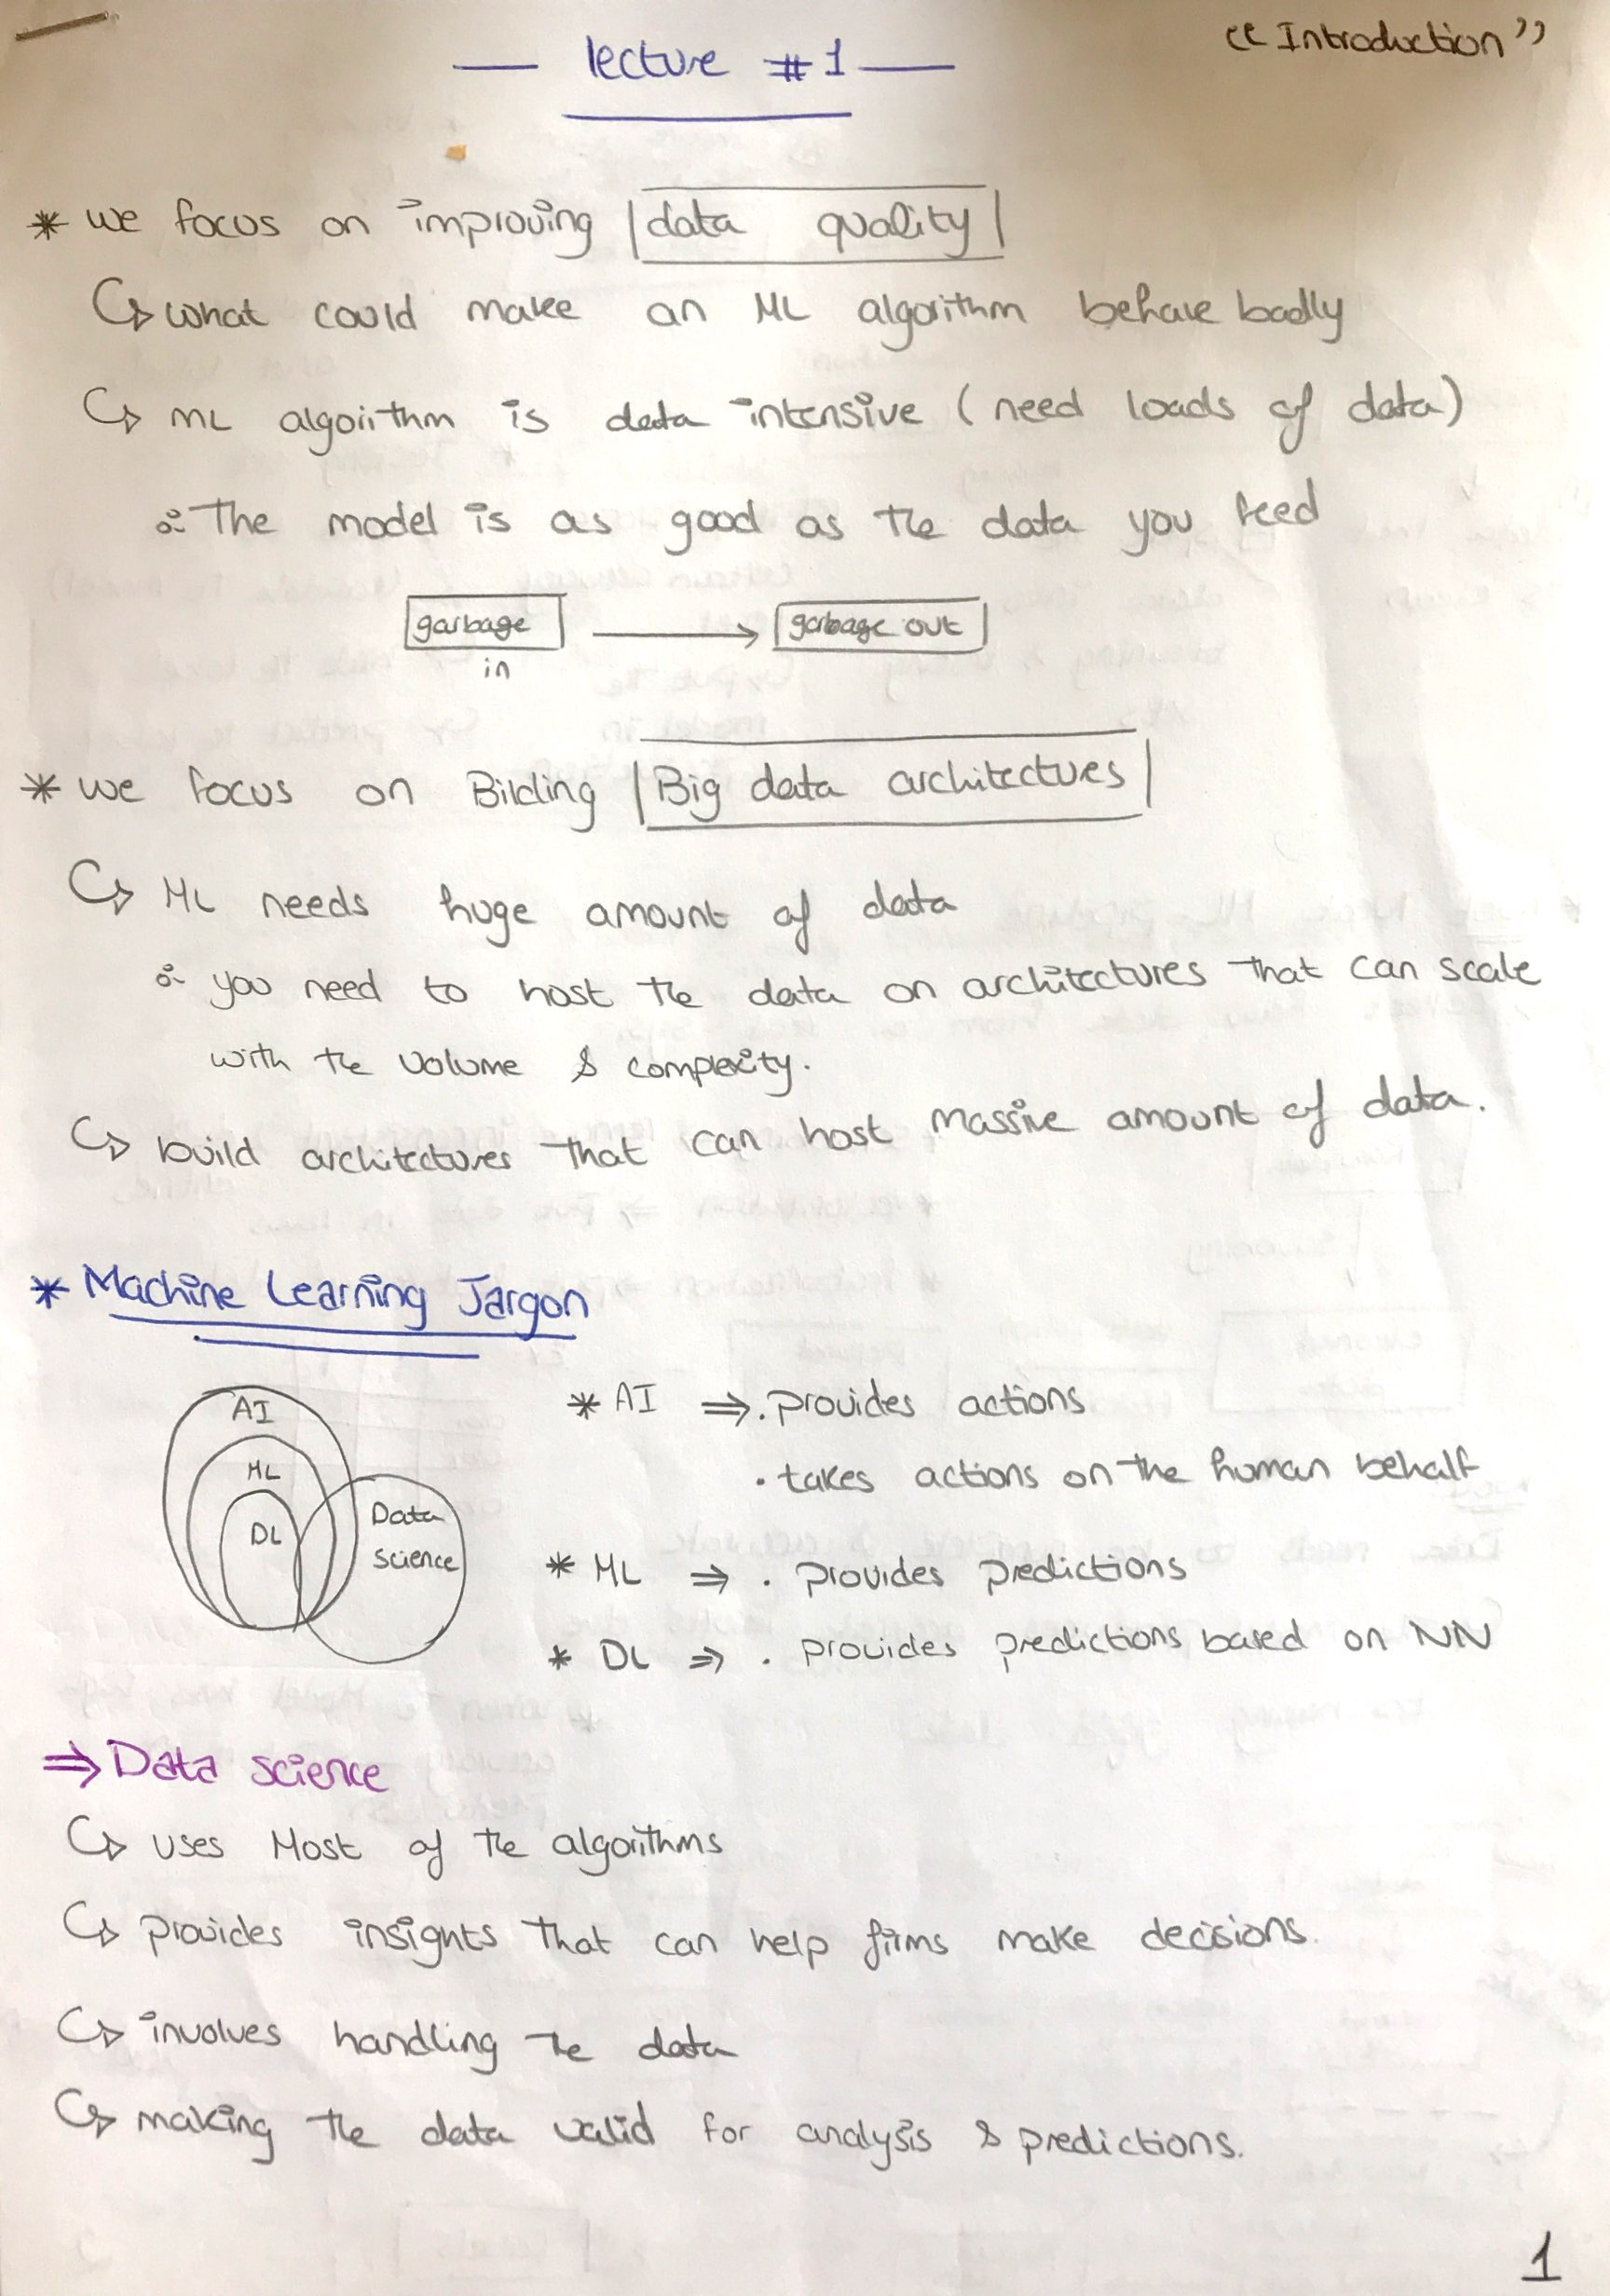 "Introduction"
lecture #1
* we focus on improving data quality
↳ what could make an ML algorithm behave badly
↳ ML algorithm is data intensive (need loads of data)
∴ The model is as good as the data you feed
garbage in → garbage out
* we focus on Bilding Big data architectures
↳ ML needs huge amount of data
∴ you need to host the data on architectures that can scale
with the volume & complexity.
↳ build architectures that can host massive amount of data.
* Machine Learning Jargon
AI
ML
DL
Data
science
* AI ⇒ . provides actions
. takes actions on the human behalf
* ML ⇒ . provides predictions
* DL ⇒ . provides predictions based on NN
⇒ Data science
↳ uses Most of the algorithms
↳ provides insights that can help firms make decisions.
↳ involves handling the data
↳ making the data valid for analysis & predictions.
1